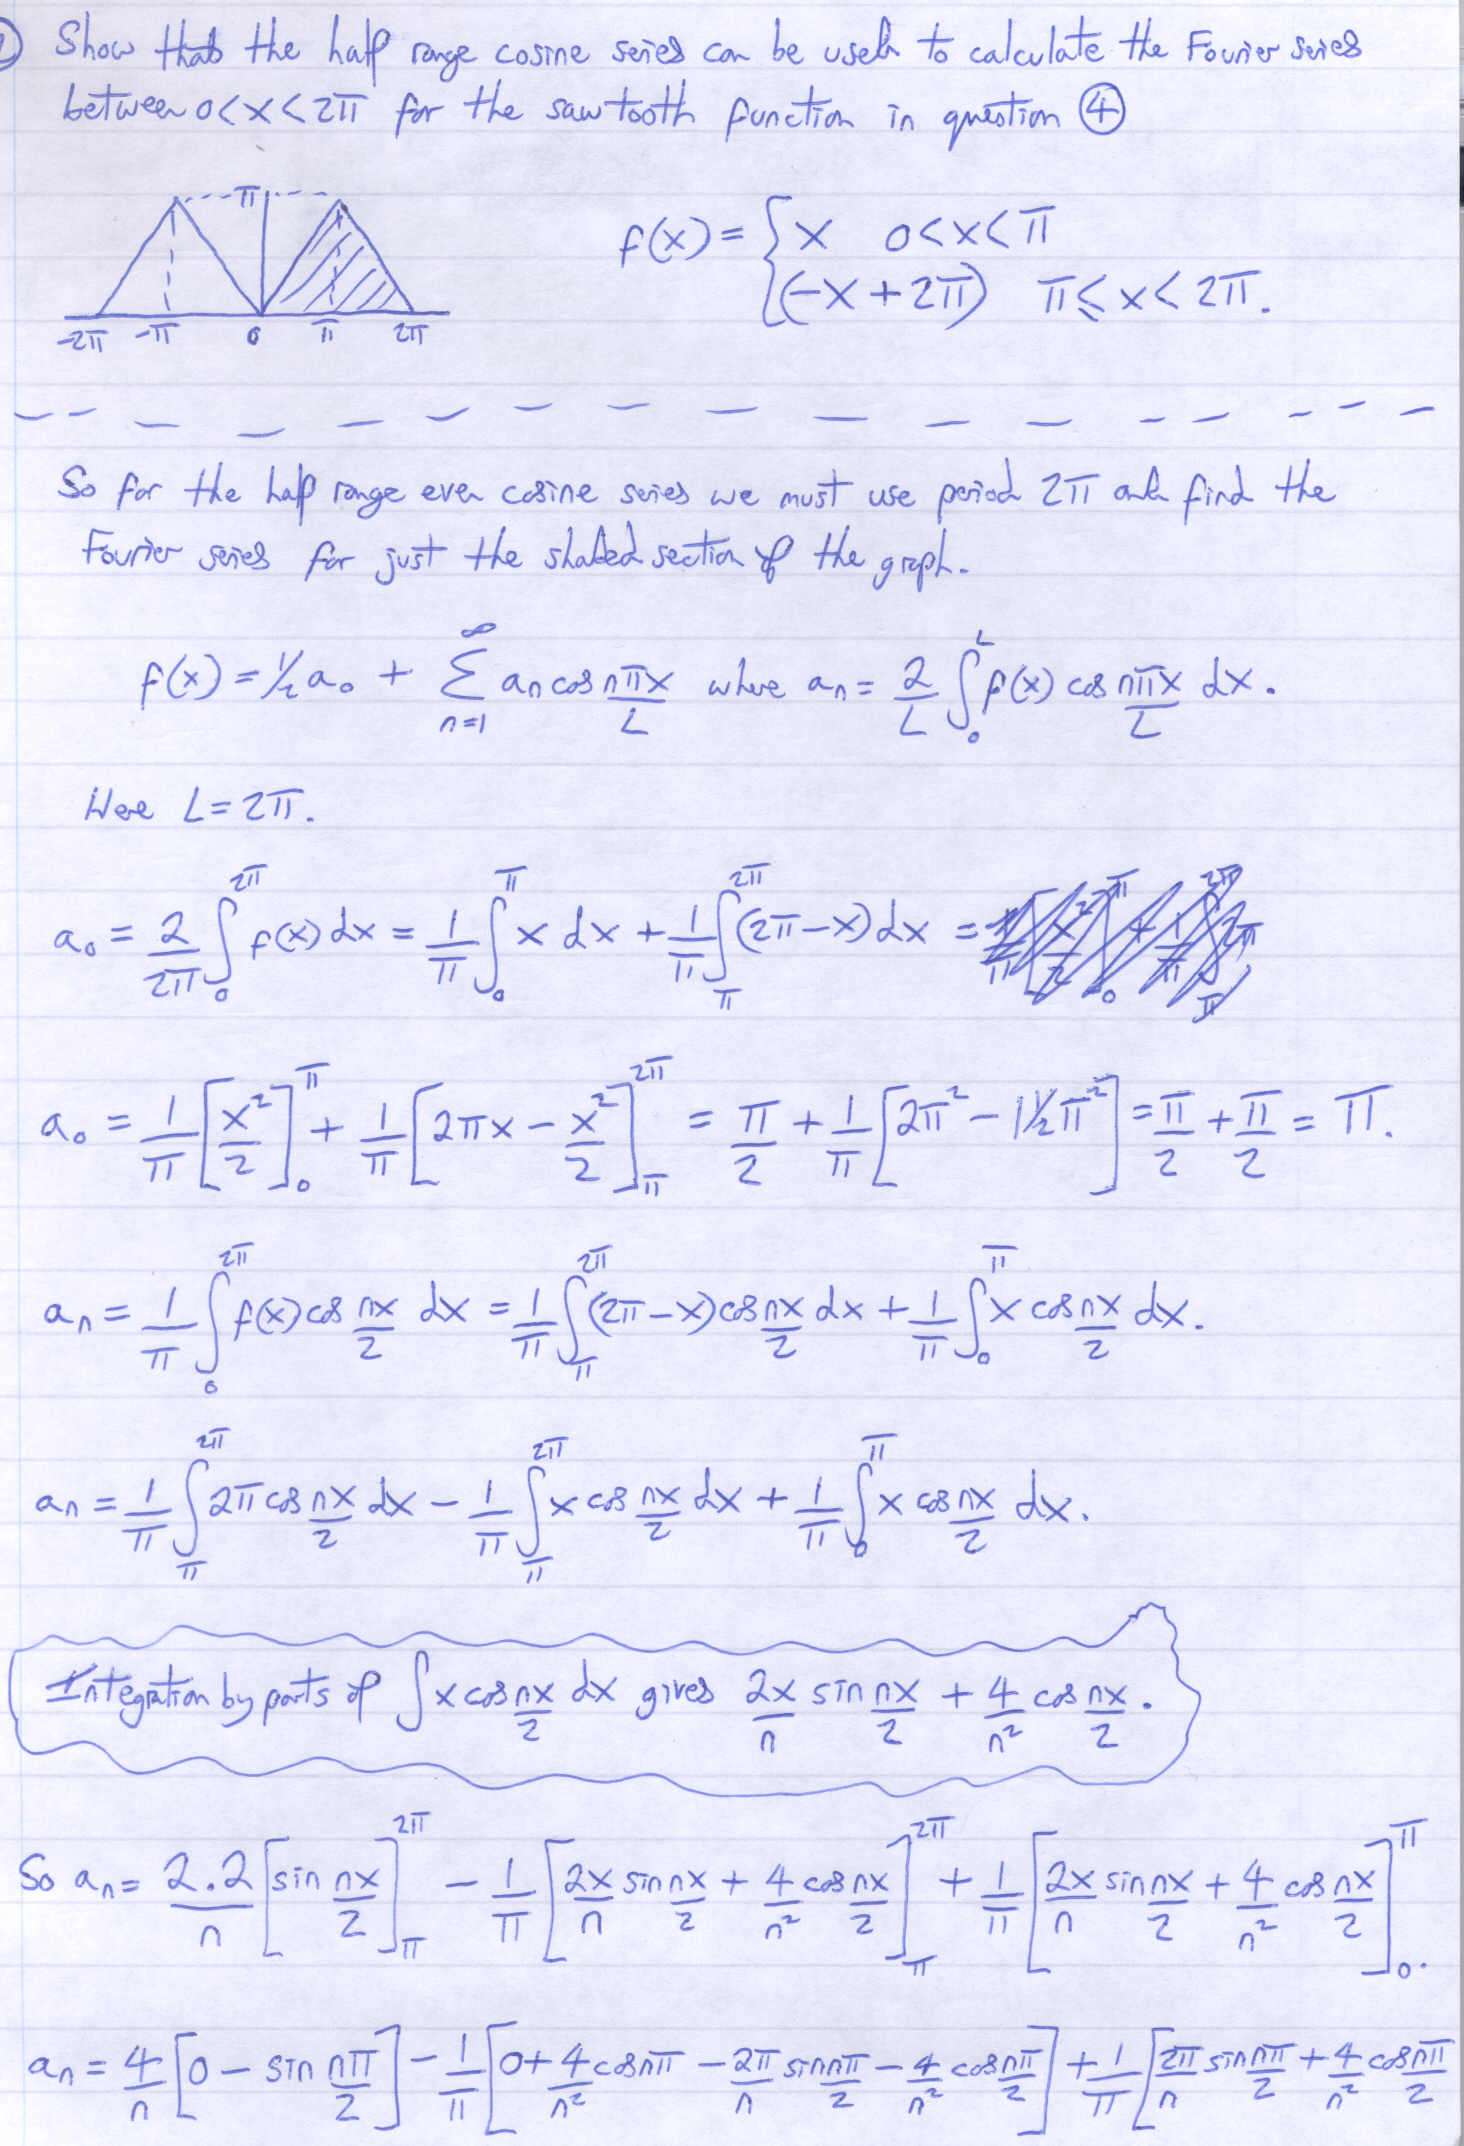 Show that the half range cosine series can be used to calculate the Fourier series
between 0<x<2π for the sawtooth function in question ④
π
-2π -π 0 π 2π
f(x) = { x 0<x<π
(-x+2π) π≤x<2π.
So for the half range even cosine series we must use period 2π and find the
Fourier series for just the shaded section of the graph.
f(x) = ½a₀ + ∑_{n=1}^{∞} aₙ cos nπx/L where aₙ = 2/L ∫_0^L f(x) cos nπx/L dx.
Here L=2π.
a₀ = 2/2π ∫_0^{2π} f(x) dx = 1/π ∫_0^π x dx + 1/π ∫_π^{2π} (2π-x) dx =
a₀ = 1/π [x²/2]_0^π + 1/π [2πx - x²/2]_π^{2π} = π/2 + 1/π [2π² - 1½π²] = π/2 + π/2 = π.
aₙ = 1/π ∫_0^{2π} f(x) cos nx/2 dx = 1/π ∫_π^{2π} (2π-x) cos nx/2 dx + 1/π ∫_0^π x cos nx/2 dx.
aₙ = 1/π ∫_π^{2π} 2π cos nx/2 dx - 1/π ∫_π^{2π} x cos nx/2 dx + 1/π ∫_0^π x cos nx/2 dx.
Integration by parts of ∫ x cos nx/2 dx gives 2x/n sin nx/2 + 4/n² cos nx/2.
So aₙ = 2.2/n [sin nx/2]_π^{2π} - 1/π [2x/n sin nx/2 + 4/n² cos nx/2]_π^{2π} + 1/π [2x/n sin nx/2 + 4/n² cos nx/2]_0^π.
aₙ = 4/n [0 - sin nπ/2] - 1/π [0 + 4/n² cos nπ - 2π/n sin nπ/2 - 4/n² cos nπ/2] + 1/π [2π/n sin nπ/2 + 4/n² cos nπ/2